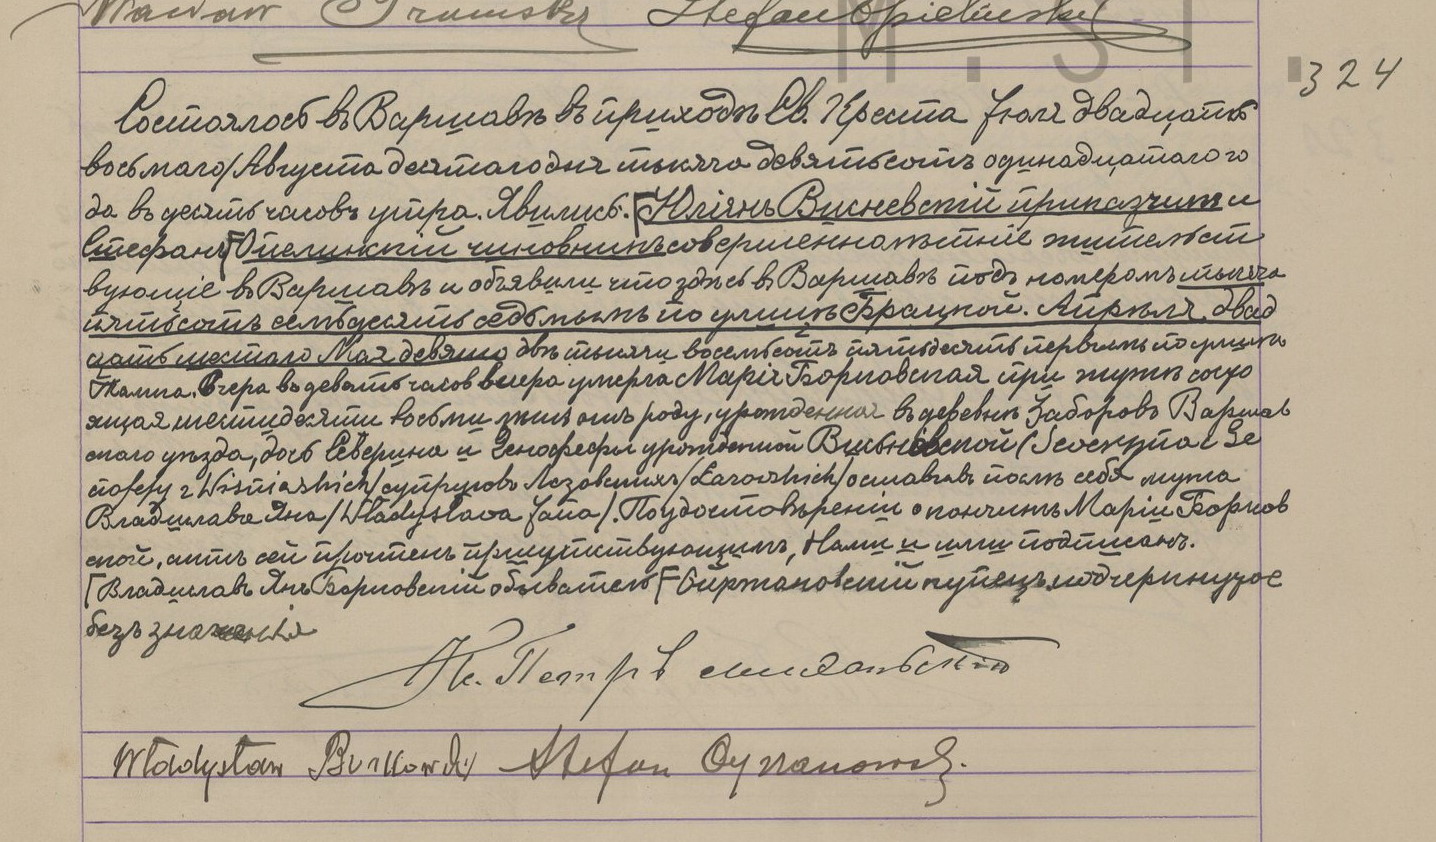 Wacław Stefan Opieliński
M.SI.
324
Состоялось въ Варшавѣ въ приходѣ Св. Креста Іюля двадцать
восьмаго/Августа десятаго дня тысяча девятьсотъ одинадцатаго го
да въ десять часовъ утра. Явились. [Юліянъ Висневскій приказчикъ и
Стефанъ [Опелинскій чиновникъ совершеннолѣтніе жительст
вующіе въ Варшавѣ и объявили что здѣсь въ Варшавѣ подъ номеромъ тысяча
пятьсотъ семьдесятъ седьмымъ по улицѣ Брацкой. Апрѣля двад
цать шестаго Мая девято двѣ тысячи восемьсотъ пятьдесятъ первымъ по улицѣ
Тамка. Вчера въ девять часов вечера умерла Марія Борковская при мужѣ состо
ящая шестидесяти восьми лѣтъ отъ роду, урожденная въ деревнѣ Заборовъ Варшав
скаго уѣзда, дочь Северина и Генофефы урожденной (Seweryna i Ge
nofefy z Wiśniewskich/супруговъ Лазовскихъ/Łazowskich/оставивъ послѣ себя мужа
Владислава Яна/Władysława Jana/. По удостовѣреніи о кончинѣ Маріи Борков
ской, актъ сей прочтенъ присутствующимъ, Нами и ими подписанъ.
[Владиславъ Янъ Борковскій обыватель [ купецъ. подчеркнутое
безъ значенія
Кс. Петръ
Władysław Burkowski Stefan